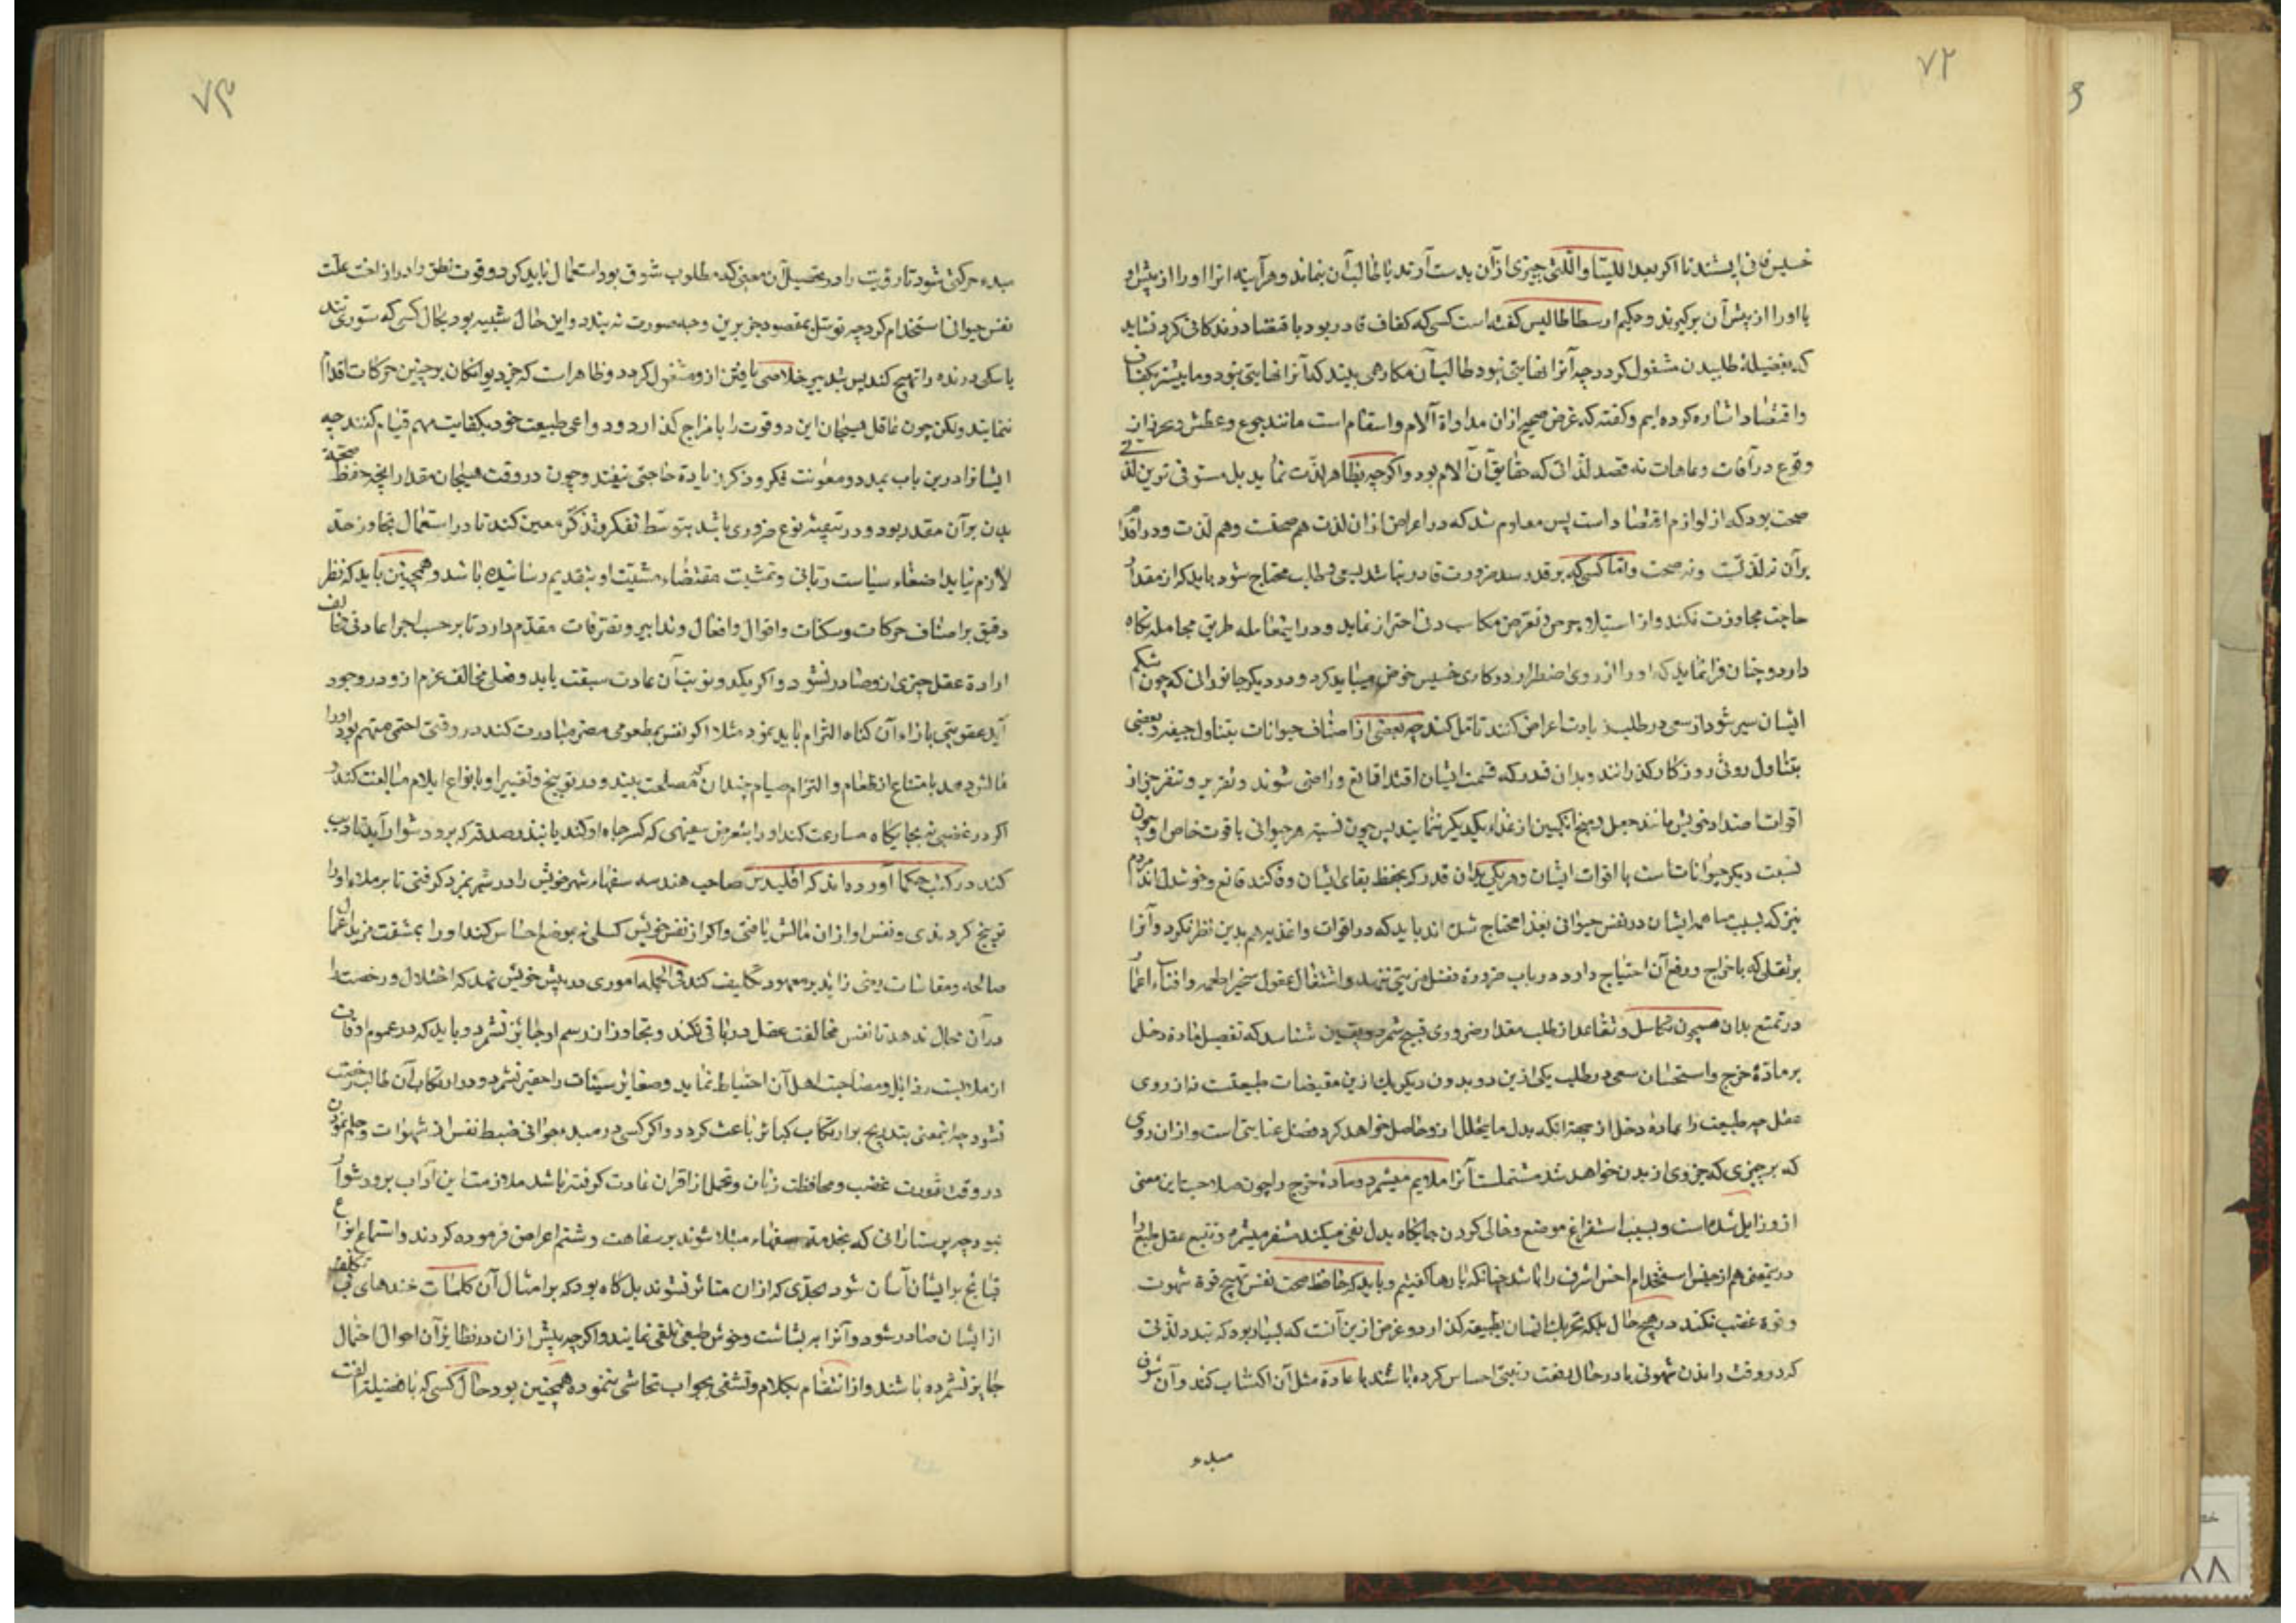 ۷۲
خسیس فانی ایستند تا اگر بعد اللتیا والّتی چیزی ازان بدست آرند یا طالب آن بماند و هر آینه انرا او را از پیش او
یا او را از پیش آن برگیرند و حکیم ارسطاطالیس گفته است کسی که کفاف قادر بود باقتصاد زندگانی کرد نشاید
که بفضیلهٔ طلبیدن مشغول گردد چه آنرا نهایتی نبود و طالب آن مکارهی بیند که آنرا نهایتی نبود و ما پیشتر بکفاف
و اقتصاد اشاره کرده ایم و گفته که غرض صحیح ازان مداواة آلام و اسقام است مانند جوع و عطش و تحرز از
وقوع در آفات و عاهات نه قصد لذاتی که حقایق آن آلام بود و اگرچه بظاهر لذت نماید بل مستوفی ترین لذتی
صحت بود که از لوازم اقتصاد است پس معلوم شد که در اعراض ازان لذت هم صحتست و هم لذت و در اقدام
بر آن نه لذتست و نه صحت و اما کسی که بر قدر سد ضرورت قادر نباشد بسعی و طلب محتاج شود باید که از مقدار
حاجت مجاوزت نکند و از استیلاء حرص و تعرض مکاسب دنی احتراز نماید و در این معامله طریق مجامله نگاه
دارد و چنان فرا نماید که او را از روی اضطرار در کاری خسیس خوض میباید کرد و در دیگر جانورانی که چون شکم
ایشان سیر شود از سعی در طلب زیادت اعراض کنند تامل کند چه بعضی از اصناف حیوانات بتناول جیفه و بعضی
بتناول روثی روزگار گذرانند و بدان قدر که قسمت ایشان افتد قانع و راضی شوند و نفرت و تنفر جز از
اقوات اضداد خویش مانند جعل و منج انگبین از غذاء یکدیگر ننمایند پس چون نسبت هر حیوانی با قوت خاص او چون
نسبت دیگر حیواناتست با اقوات ایشان و هر یکی بدان قدر که بحفظ بقای ایشان وفا کند قانع و خوشدل اند مردم
نیز که بسبب مساهمه ایشان در نفس حیوانی بغذا محتاج شده اند باید که در اقوات و اغذیه هم بدین نظر نگرد و آنرا
بر ثقلی که باخراج و دفع آن احتیاج دارد در باب ضرورة فضل مزیتی ننهد و اشتغال عقول بتخیر اطعمه و افناء اعمار
در تمتع بدان همچون تکاسل و تقاعد از طلب مقدار ضروری قبیح شمرد و بیقین شناسد که تفضیل مادهٔ دخل
بر مادهٔ خرج و استحسان سعی در طلب یکی ازین دو بدون دیگر یک ازین مقتضیات طبیعتست نه از روی
عقل چه طبیعت را بمادهٔ دخل از جهت آنکه بدل ما یتحلل ازو حاصل خواهد کرد فضل عنایتی است و ازان روی
که بر چیزی که جزوی از بدن خواهد شد مشتملست آنرا ملایم میشمرد و مادهٔ خرج را چون صلاحیت این معنی
ازو زایل شده است و بسبب استفراغ موضع و خالی کردن جایگاه بدل نفی میکند متنفر میشمرد و تتبع عقل طبع را
درین معنی هم از جنس استخدام اخس اشرف را باشد چنانکه بارها گفتیم و باید که حافظ صحت نفس تهییج قوة شهوت
و قوة غضب نکند در هیچ حال بلکه تحریک ایشان بطبیعت گذارد و غرض ازین آنست که بسیار بود که بتذکر لذتی
که در وقت راندن شهوتی یا در حال رفعت رتبتی احساس کرده باشند باعادهٔ مثل آن اکتساب کند و آن شوق
مبدء
۷۳
مبدء حرکتی شود تا رویت را در تحصیل آن معنی که مطلوب شوق بود استعمال باید کرد و قوت نطق را در ازاحت علت
نفس حیوانی استخدام کرد چه توسل بمقصود جز برین وجه صورت نبندد و این حال شبیه بود بحال کسی که ستوری تند
یا سگی درنده را تهییج کند پس بتدبیر خلاصی یافتن ازو مشغول گردد و ظاهر است که جز دیوانگان بر چنین حرکات اقدام
ننمایند و لکن چون عاقل هیجان این دو قوت را با مزاج گذارد دواعی طبیعت خود بکفایت مهم قیام کنند چه
ایشانرا درین باب بمدد و معونت فکر و ذکر زیادة حاجتی نیفتد و چون در وقت هیجان مقدار آنچه حفظ صحة
بدن بر آن مقدر بود و در تبقیهٔ نوع ضروری باشد بتوسط تفکر و تذکر معین کند تا در استعمال تجاوز حد
لازم نیاید امضاء سیاست ربانی و تمشیت مقتضاء مشیت او بتقدیم رسانیده باشد و همچنین باید که نظر
دقیق بر اصناف حرکات و سکنات و اقوال و افعال و تدابیر و تصرفات مقدم دارد تا بر حسب اجراء عادتی مخالف
ارادة عقل چیزی ازو صادر نشود و اگر یک دو نوبت آن عادت سبقت یابد و فعلی مخالف عزم ازو در وجود
آید عقوبتی بازاء آن گناه التزام باید نمود مثلا اگر نفس بمطعومی مضر مبادرت کند در وقتی که حمیه مهم بود او را
مالش دهد بامتناع از طعام و التزام صیام چندان که مصلحت بیند و در توبیخ و تعییر او بانواع ایلام مبالغت کند و
اگر در غضبی نه بجایگاه مسارعت کند او را بتعرض سفیهی که کسر جاه او کند یا بنذر صدقه که برو دشوار آید تادیب
کند در کتب حکما آورده اند که اقلیدس صاحب هندسه سفهاء شهر خویش را در سر بمزد گرفتی تا بر ملاء او را
توبیخ کردندی و نفس او ازان مالش یافتی و اگر از نفس خویش کسلی نه بموضع احساس کند او را بمشقت مزید اعمال
صالحه و مقاسات رنجی زاید بر معهود تکلیف کند فی الجمله اموری در پیش خویش نهد که اختلال و رخصت را
در آن مجال ندهد تا نفس مخالفت عقل در باقی نکند و تجاوز از رسم او جایز نشمرد و باید که در عموم اوقات
از ملابست رذایل و مصاحبت اهل آن احتیاط نماید و صغایر سیئات را حقیر نشمرد و در ارتکاب آن طالب رخصت
نشود چه این معنی بتدریج بر ارتکاب کبائر باعث گردد و اگر کسی در مبدء جوانی ضبط نفس از شهوات و حلم نمودن
در وقت ثورت غضب و محافظت زبان و تحمل از اقران عادت گرفته باشد ملازمت این آداب برو دشوار
نبود چه پرستارانی که بخدمت سفهاء مبتلا شوند بر سفاهت و شتم اعراض فرسوده گردند و استماع انواع
قبایح بر ایشان آسان شود بحدی که ازان متاثر نشوند بل گاه بود که بر امثال آن کلمات خنده های بی تکلف
از ایشان صادر شود و آنرا ببشاشت و خوش طبعی تلقی نمایند و اگرچه پیش ازان در نظایر آن احوال احتمال
جایز نشمرده باشند و از انتقام بکلام و تشفی بجواب تحاشی ننموده همچنین بود حال کسی که با فضیلت الفت